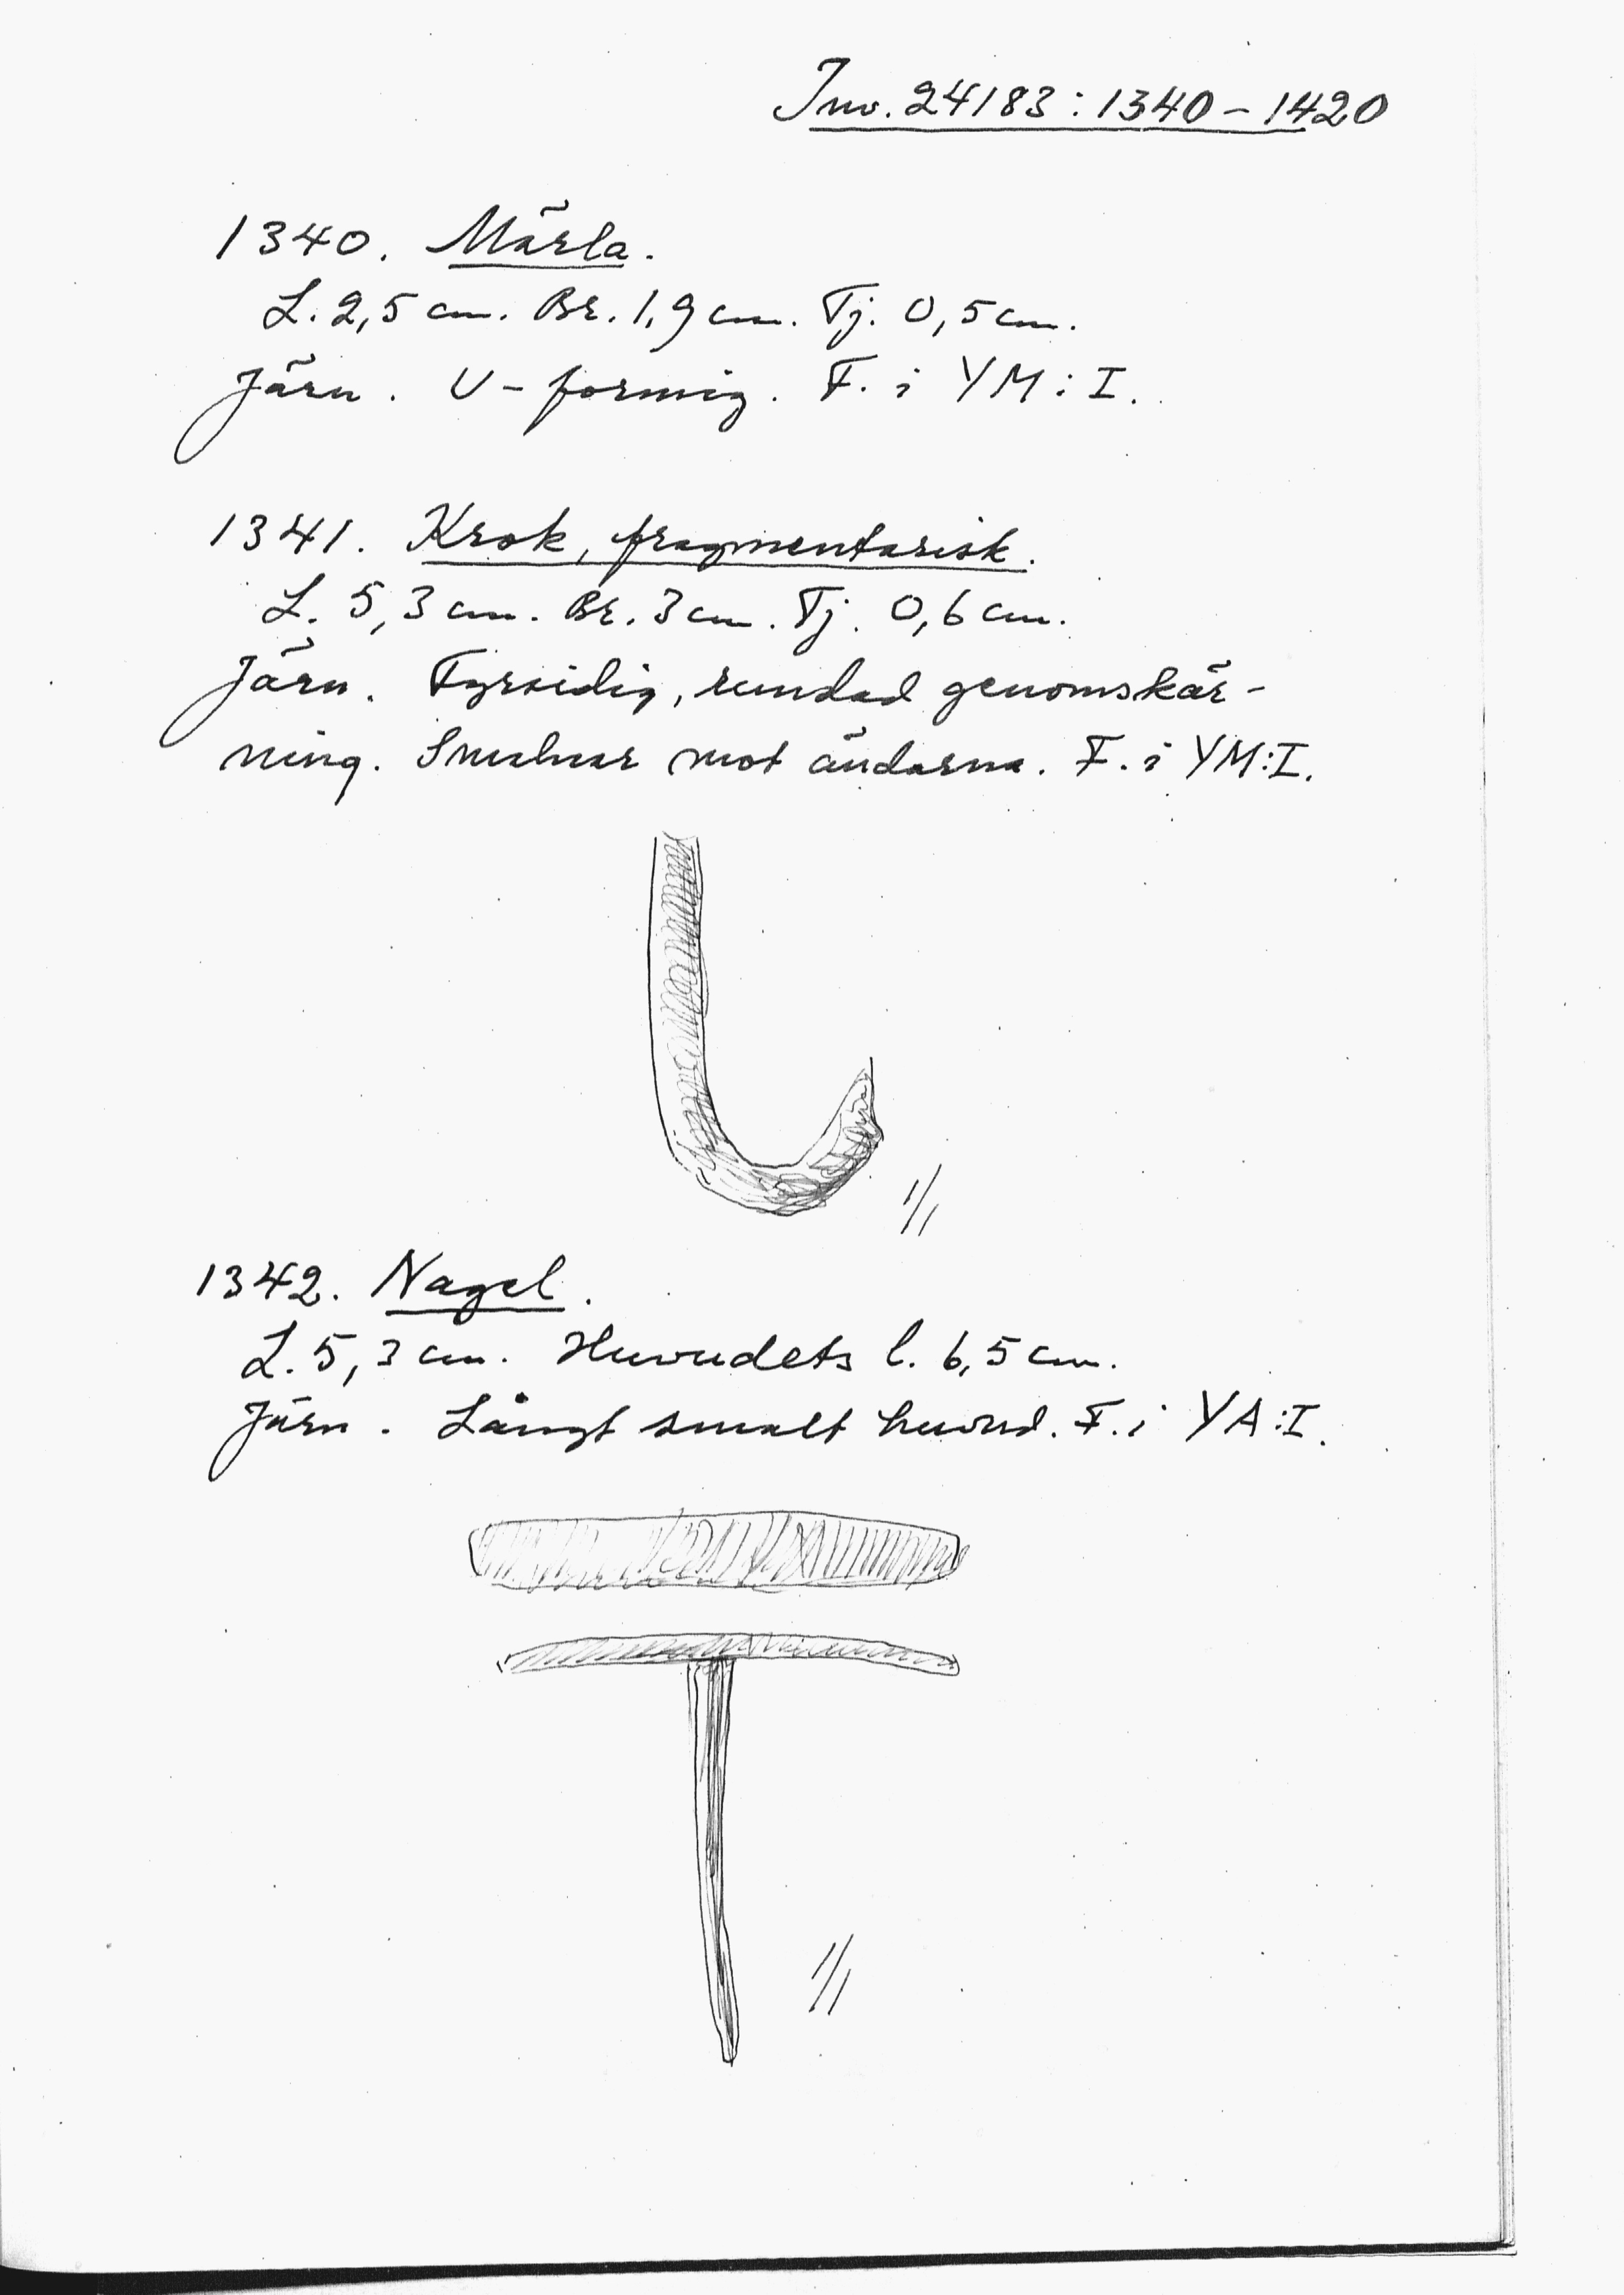 Inv. 24183:1340-1420
1340. Märla.
L. 2,5 cm. Br. 1,9 cm. Tj. 0,5 cm.
Järn. U-formig. F. i YM:I.
1341. Krok, fragmentarisk.
L. 5,3 cm. Br. 3 cm. Tj. 0,6 cm.
Järn. Fyrsidig, rundad genomskär-
ning. Smalnar mot ändarna. F. i YM:I.
1/1
1342. Nagel.
L. 5,3 cm. Huvudets l. 6,5 cm.
Järn. Långt smalt huvud. F. i YA:I.
1/1